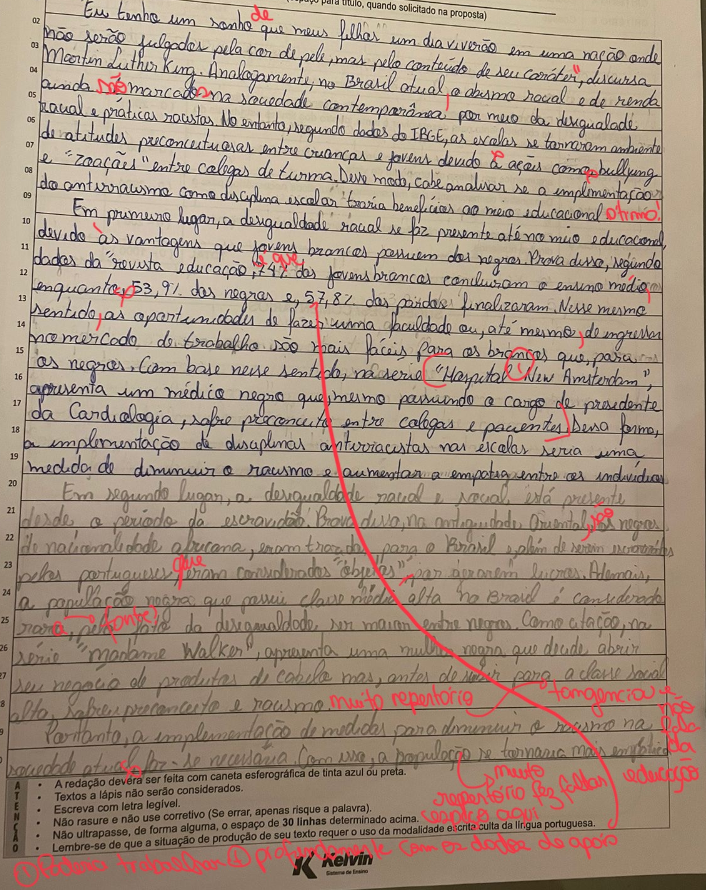 para título, quando solicitado na proposta)
de
02 Eu tenho um sonho que meus filhos um dia viverão em uma nação onde
03 não serão julgados pela cor de pele, mas pelo conteúdo de seu caráter", discursa
04 Martin Luther King. Analogamente, no Brasil atual, o abismo racial e de renda
05 ainda são marcados na sociedade contemporânea, por meio da desigualdade
06 racial e práticas racistas. No entanto, segundo dados do IBGE, as escolas se tornaram ambiente
07 de atitudes preconceituosas entre crianças e jovens devido a ações como bullying
08 e "zoações" entre colegas de turma. Desse modo, cabe analisar se a implementação
09 do antirracismo como disciplina escolar traria benefícios ao meio educacional ótimo!
10 Em primeiro lugar, a desigualdade racial se faz presente até no meio educacional,
11 devido às vantagens que jovens brancos possuem dos negros. Prova disso, segundo
que
12 dados da "revista educação, 74% dos jovens brancos concluíram o ensino médio,
13 enquanto, 53,9% dos negros e, 57,8% dos pardos finalizaram. Nesse mesmo
14 sentido, as oportunidades de fazer uma faculdade ou, até mesmo, de ingressar
15 no mercado de trabalho são mais fáceis para os brancos que, para
16 os negros. Com base nesse sentido, na serie "Hospital New Amsterdam",
17 apresenta um médico negro que, mesmo possuindo o cargo de presidente
18 da Cardiologia, sofre preconceito entre colegas e pacientes, dessa forma,
19 a implementação de disciplinas antirracistas nas escolas seria uma
20 medida de diminuir o racismo e aumentar a empatia entre os indivíduos
21 Em segundo lugar, a desigualdade racial e social, está presente
22 desde o período da escravidão. Prova disso, na antiguidade Oriental, os negros
23 de nacionalidade africana, eram trazidos para o Brasil e, além de serem escravizados
que
24 pelos portugueses, eram considerados "objetos" por gerarem lucros. Ademais,
a população negra que possui classe média alta no Brasil é considerada
25 rara, pelo fato da desigualdade ser maior entre negros. Como citação, na
(fonte?)
26 série "Madame Walker", apresenta uma mulher negra que decide abrir
27 seu negocio de produtos de cabelo mas, antes de subir para a classe social
8 alta, sofreu preconceito e racismo muito repertório tangenciou e
não fala da educação
9 Portanto, a implementação de medidas para diminuir o racismo na
sociedade atual, faz-se necessária. Com isso, a população se tornaria mais empática
muito repertório fez faltar espaço aqui
ATENÇÃO
• A redação deverá ser feita com caneta esferográfica de tinta azul ou preta.
• Textos a lápis não serão considerados.
• Escreva com letra legível.
• Não rasure e não use corretivo (Se errar, apenas risque a palavra).
• Não ultrapasse, de forma alguma, o espaço de 30 linhas determinado acima.
• Lembre-se de que a situação de produção de seu texto requer o uso da modalidade escrita culta da língua portuguesa.
profundamente com os dados de apoio
Kelvin
Sistema de Ensino